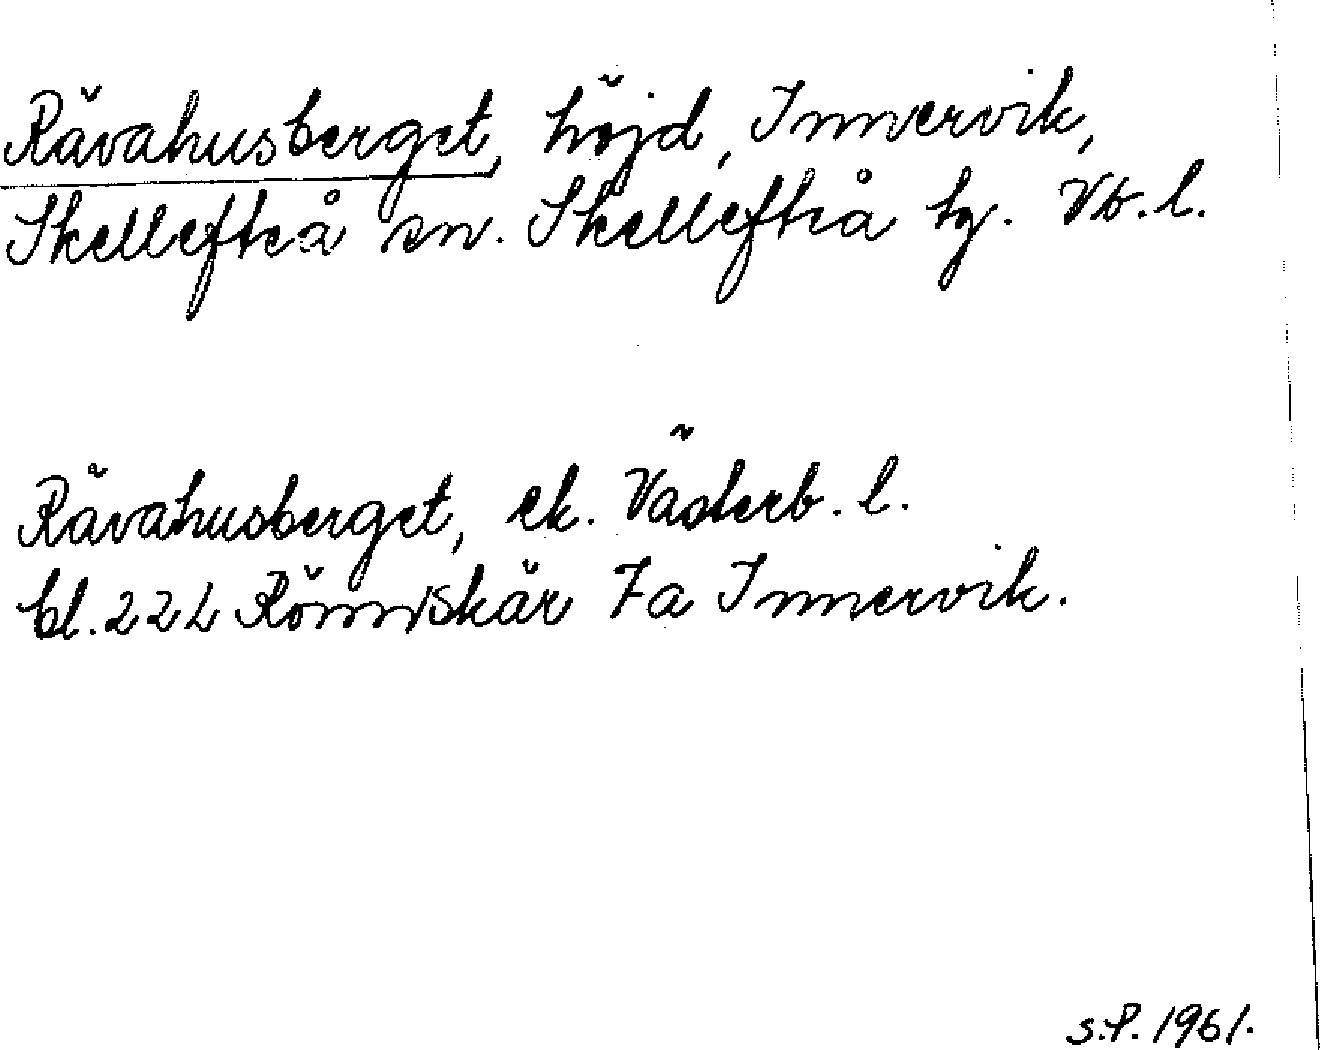 Rävahusberget, höjd, Innervik,
Skellefteå sn. Skellefteå tg. Vb.l.
Rävahusberget, ek. Västerb. l.
bl. 22L Rönnskär 7a Innervik.
S.P. 1961.